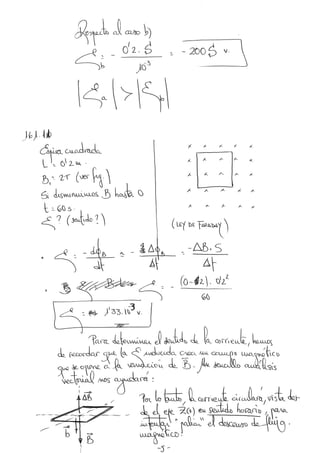 Respecto al caso b)
ε_b = - 0'2 · S / 10⁻³ = - 200 S v.
|ε_a| > |ε_b|
Espira cuadrada
L = 0'2 m.
B₁ = 2T (ver fig.)
Si disminuimos B hasta 0
t = 60 s.
ε? (sentido?)
(LEY DE FARADAY)
ε = - dΦ_B / dt = - ΔΦ_B / Δt = - ΔB · S / Δt
ε = - (0-2) · 0'2² / 60
ε = 1'33·10⁻³ v.
Para determinar el sentido de la corriente, hemos
de recordar que la ε inducida crea un campo magnético
que se opone a la variación de B. Un sencillo análisis
vectorial nos ayudará:
ΔB
Por lo tanto, la corriente circulará, vista des-
de el eje Z(+) en sentido horario, para
intentar "paliar" el descenso de flujo
magnético.
b
B
-5-